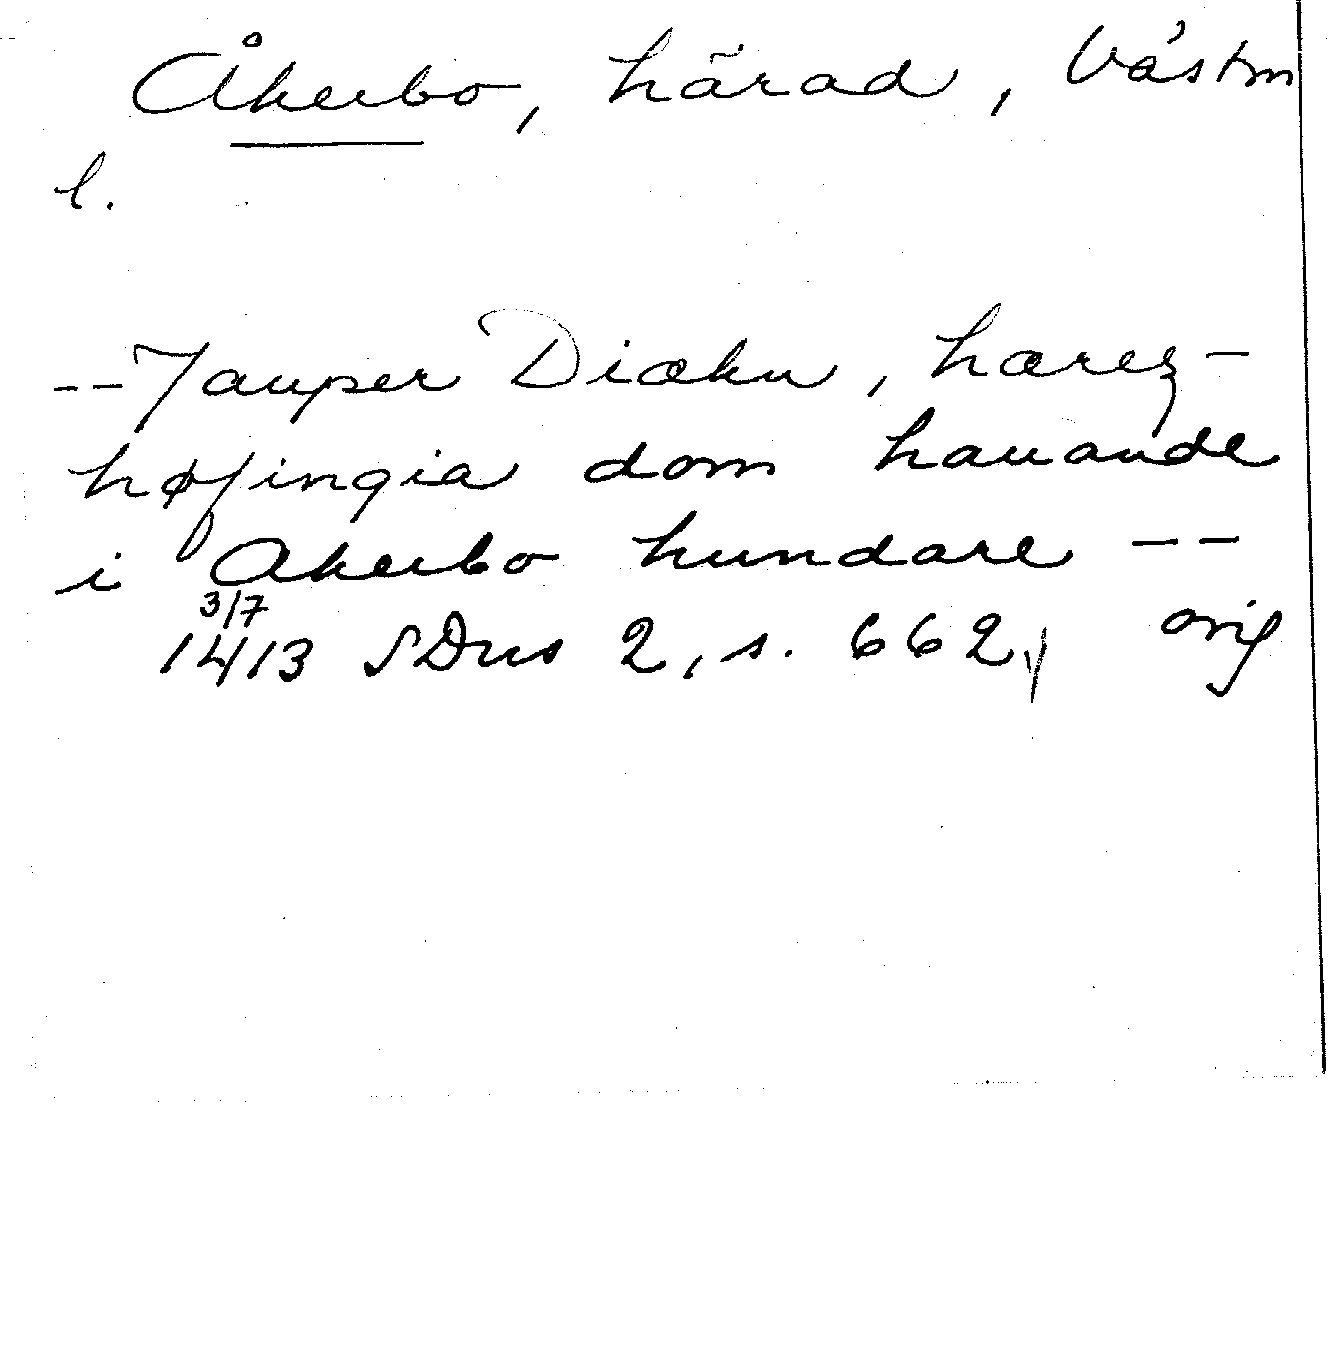 Åkerbo, härad, Västm
l.
-- Jauper Diækn, hæreꝫ-
høfingia dom hauande
i Akerbo hundare --
3/7
1413 SDns 2, s. 662, orig